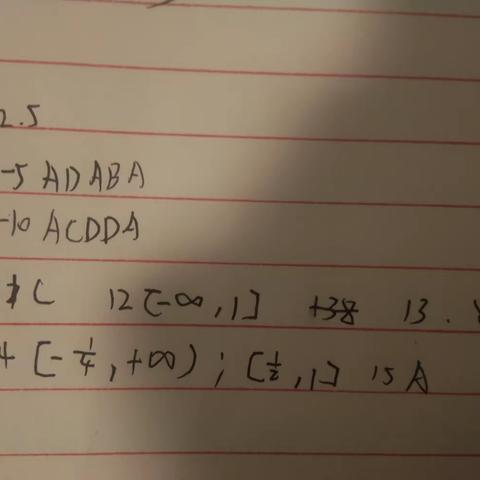 2.5
-5 ADABA
-10 ACDDA
C 12 [-∞,1] 13.
4 [-1/4,+∞);[1/2,1] 15 A